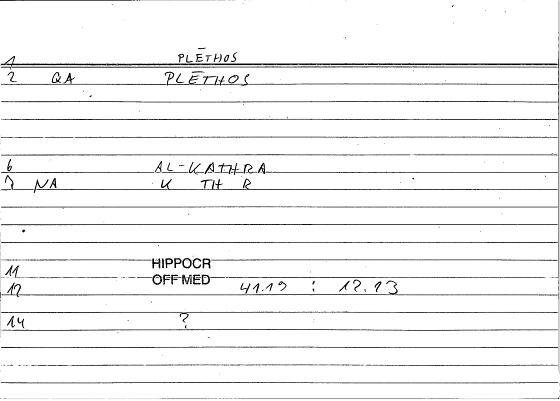 1 PLĒTHOS
2 QA PLĒTHOS
6 AL-KATHRA
7 NA K TH R
11 HIPPOCR
OFF MED
12 41.19 : 12.13
14 ?